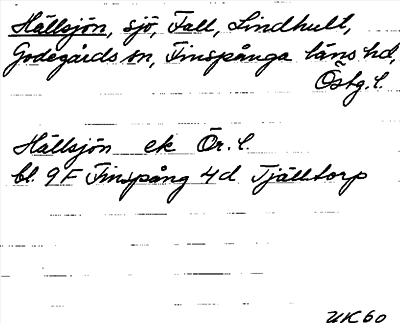 Hällsjön, sjö, Fall, Lindhult,
Godegårds sn, Finspånga läns hd,
Östg. l.
Hällsjön ek Ör. l.
bl. 9F Finspång 4d Tjälltorp
UK 60